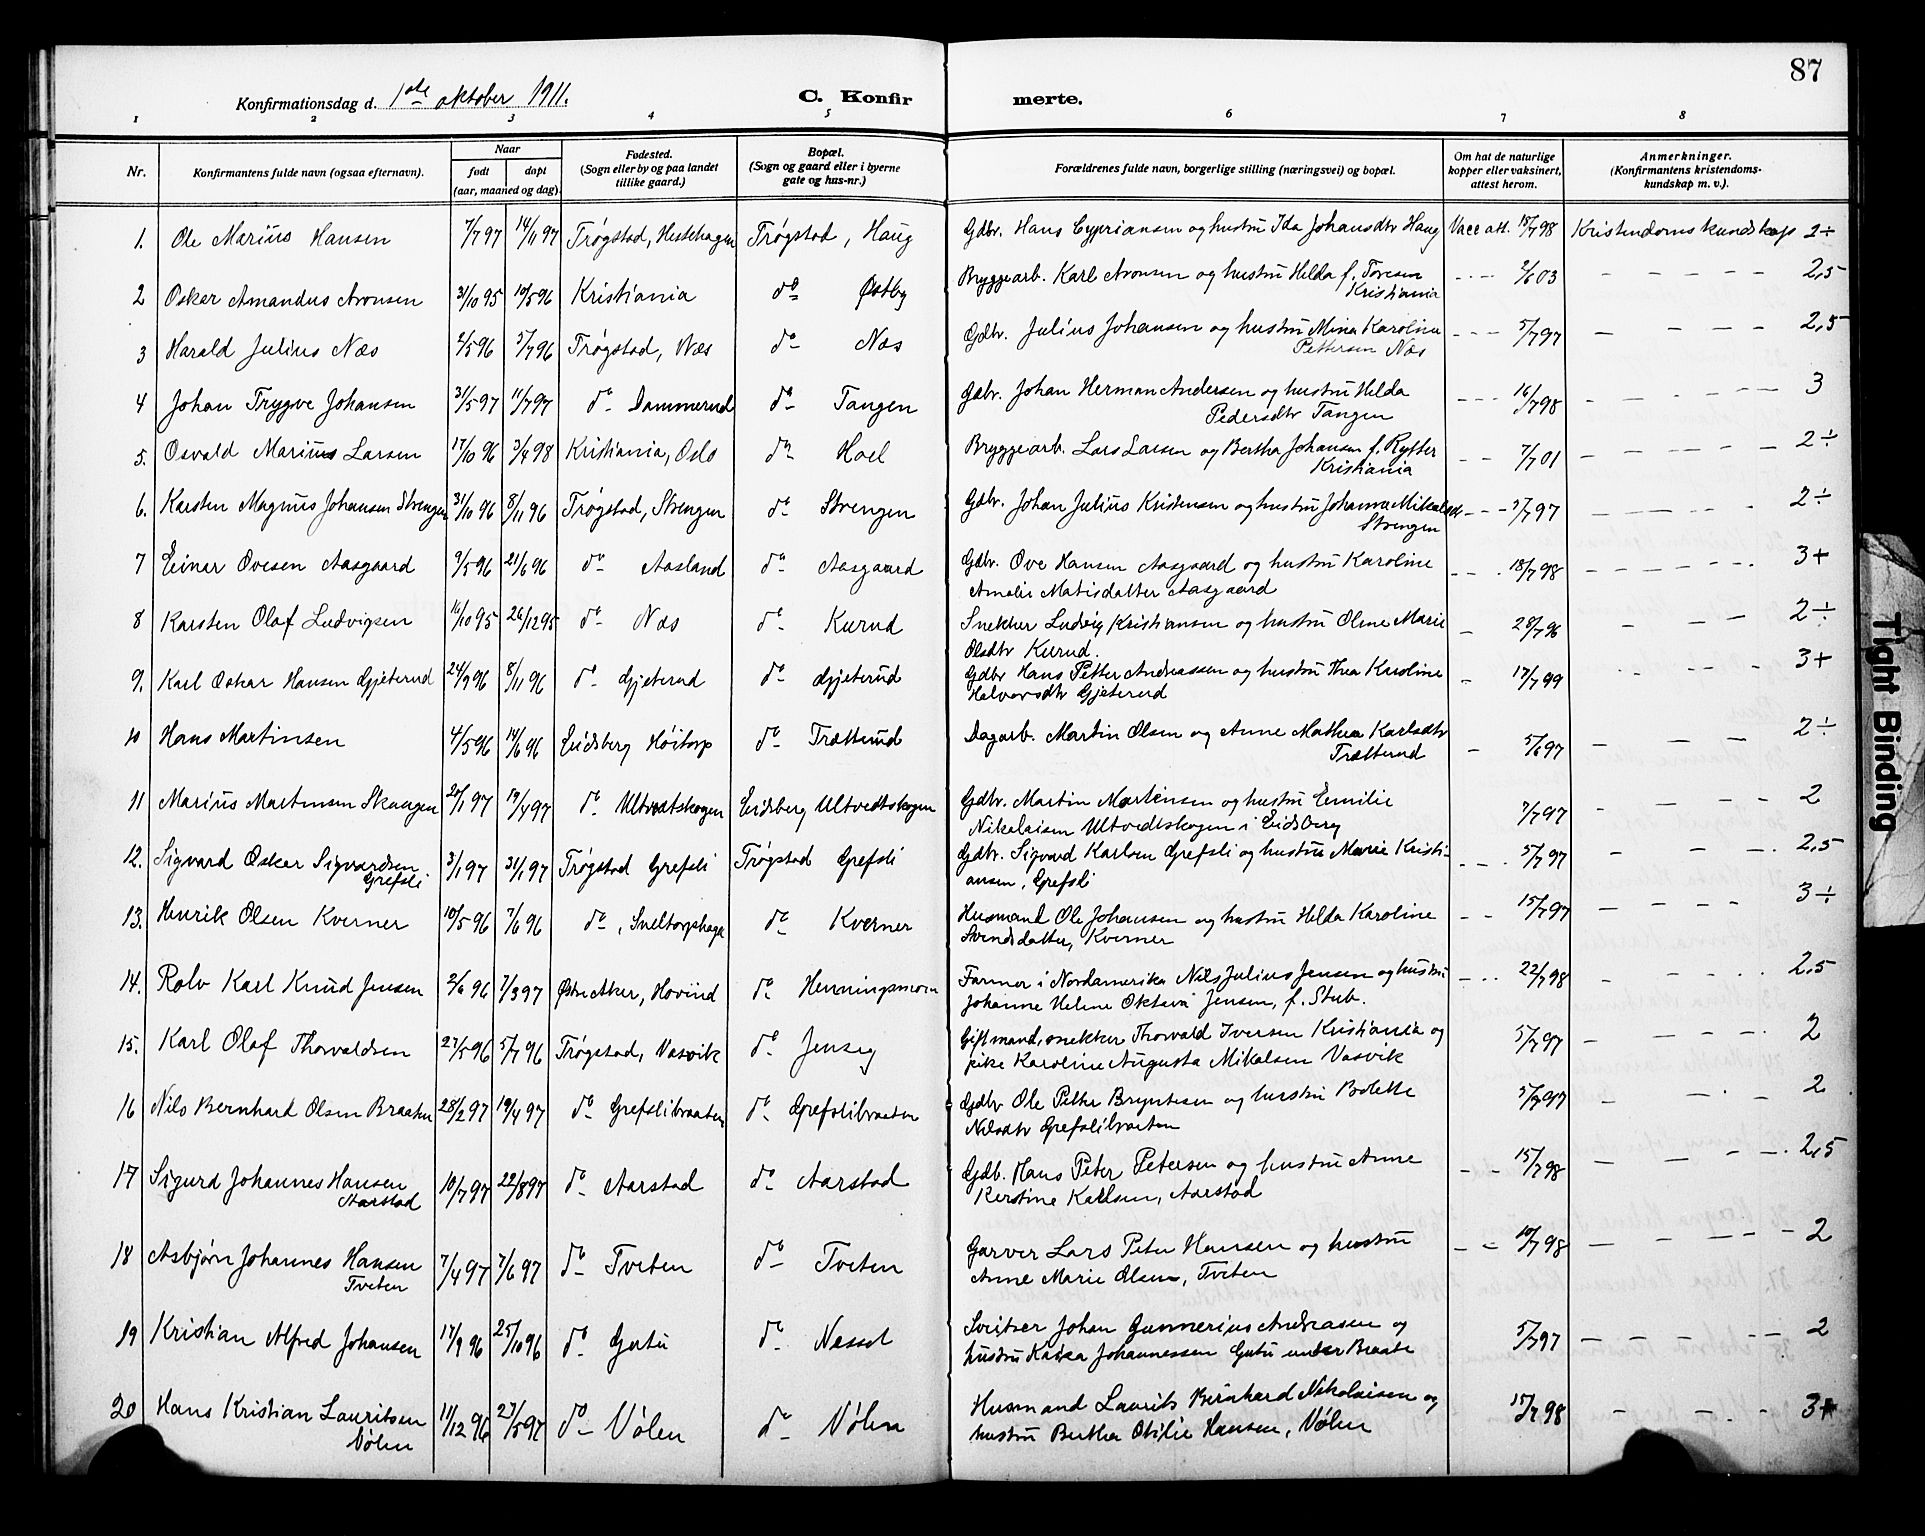 87
Konfirmationsdag d. 1ste oktober 1911.
C. Konfir merte.
1 2 3 4 5 6 7 8
Nr. Konfirmantens fulde navn (ogsaa efternavn). Naar født døpt (aar, maaned og dag). Fødested. (Sogn eller by og paa landet tillike gaard.) Bopæl. (Sogn og gaard eller i byerne gate og hus-nr.) Forældrenes fulde navn, borgerlige stilling (næringsvei) og bopæl. Om hat de naturlige kopper eller vaksinert, attest herom. Anmerkninger. (Konfirmantens kristendoms-kundskap m. v.).
1. Ole Marius Hansen 7/7 97 14/11 97 Trøgstad, Hestehagen Trøgstad, Haug Gdbr. Hans Cypriansen og hustru Ida Johansdtr Haug Vacc att. 18/7 98 Kristendomskundskap 2÷
2 Oskar Amandus Aronsen 31/10 95 10/5 96 Kristiania do Østby Bryggearb. Karl Aronsen og hustru Hilda f. Toresen
Kristiania 2/6 03 2,5
3 Harald Julius Næs 2/5 96 5/7 96 Trøgstad, Næs do Næs Gdbr. Julius Johansen og hustru Mina Karoline
Pettersen Næs 5/7 97 2,5
4 Johan Trygve Johansen 31/5 97 11/7 97 do Dammerud do Tangen Gdbr. Johan Herman Andersen og hustru Hilda
Pedersdtr Tangen 16/7 98 3
5. Osvald Marius Larsen 17/10 96 3/4 98 Kristiania, Oslo do Hoel Bryggearb. Lars Larsen og Bertha Johansen f. Rytter
Kristiania 7/7 01 2÷
6. Karsten Magnus Johansen Strengen 31/10 96 8/11 96 Trøgstad, Strengen do Strengen Gdbr. Johan Julius Kristensen og hustru Johanne Mikalsdtr
Strengen 5/7 97 2÷
7 Einar Ovesen Aasgaard 9/5 96 21/6 96 do Aasland do Aasgaard Gdbr. Ove Hansen Aasgaard og hustru Karoline
Amalie Matisdatter Aasgaard 18/7 98 3+
8 Karsten Olaf Ludvigsen 16/10 95 26/12 95 do Næs do Kurud Snekker Ludvig Kristiansen og hustru Oline Marie
Olsdtr Kurud. 28/7 96 2÷
9. Karl Oskar Hansen Gjeterud 24/9 96 8/11 96 do Gjeterud do Gjeterud Gdbr Hans Petter Andreassen og hustru Thea Karoline
Halvorsdtr Gjeterud 17/7 99 3+
10 Hans Martinsen 4/5 96 14/6 96 Eidsberg Høitorp do Trætterud Dagarb. Martin Olsen og Anne Mathea Karlsdtr
Trætterud 5/6 97 2÷
11 Marius Martinsen Skaugen 20/1 97 19/4 97 do Ultvedtskogen Eidsberg Ultvedtskogen Gdbr. Martin Mortensen og hustru Emilie
Nikolaisen Ultvedtskogen i Eidsberg 7/7 97 2
12. Sigvard Oskar Sigvardsen
Grefsli 3/1 97 31/1 97 Trøgstad Grefsli Trøgstad Grefsli Gdbr. Sigvard Karlsen Grefsli og hustru Marie Kristi-
ansen, Grefsli 5/7 97 2,5
13. Henrik Olsen Kverner 10/5 96 7/6 96 do, Sneltorphage do Kverner Husmand Ole Johansen og hustru Hilda Karoline
Svendsdatter, Kverner 15/7 97 3÷
14. Rolv Karl Knud Jensen 2/6 96 7/3 97 Østre Aker, Hovind do Henningsmoen Farmer i Nordamerika Nils Julius Jensen og hustru
Johanne Helene Oktava Jensen, f. Stub. 22/7 98 2,5
15. Karl Olaf Thorvaldsen 27/5 96 5/7 96 Trøgstad, Vasvik do Jenseg Gift mand, snekker Thorvald Iversen Kristiania og
pike Karoline Augusta Mikalsen Vasvik 5/7 97 2
16 Nils Bernhard Olsen Braaten 28/2 97 19/4 97 do Grefslibraaten do Grefslibraaten Gdbr Ole Petter Bryntesen og hustru Bolette
Nilsdtr Grefslibraaten 5/7 97 2
17 Sigurd Johannes Hansen
Aarstad 10/7 97 22/8 97 do Aarstad do Aarstad Gdb. Hans Peter Petersen og hustru Anne
Kerstine Karlsen, Aarstad 15/7 98 2,5
18 Asbjørn Johannes Hansen
Tveten 7/4 97 7/6 97 do Tveten do Tveten Garver Lars Peter Hansen og hustru
Anne Marie Olsen, Tveten 10/7 98 2
19 Kristian Alfred Johansen 17/9 96 25/10 96 do Gutu do Næssel Sveitser Johan Gunnerius Andreasen og
hustru Kaisa Johannessen Gutu under Braate 5/7 97 2
20 Hans Kristian Lauritsen
Nølen 11/12 96 27/5 97 do Nølen do Nølen Husmand Laurits Bernhard Nikolaisen og
hustru Berthe Otilie Hansen, Nølen 15/7 98 3+
Tight Binding